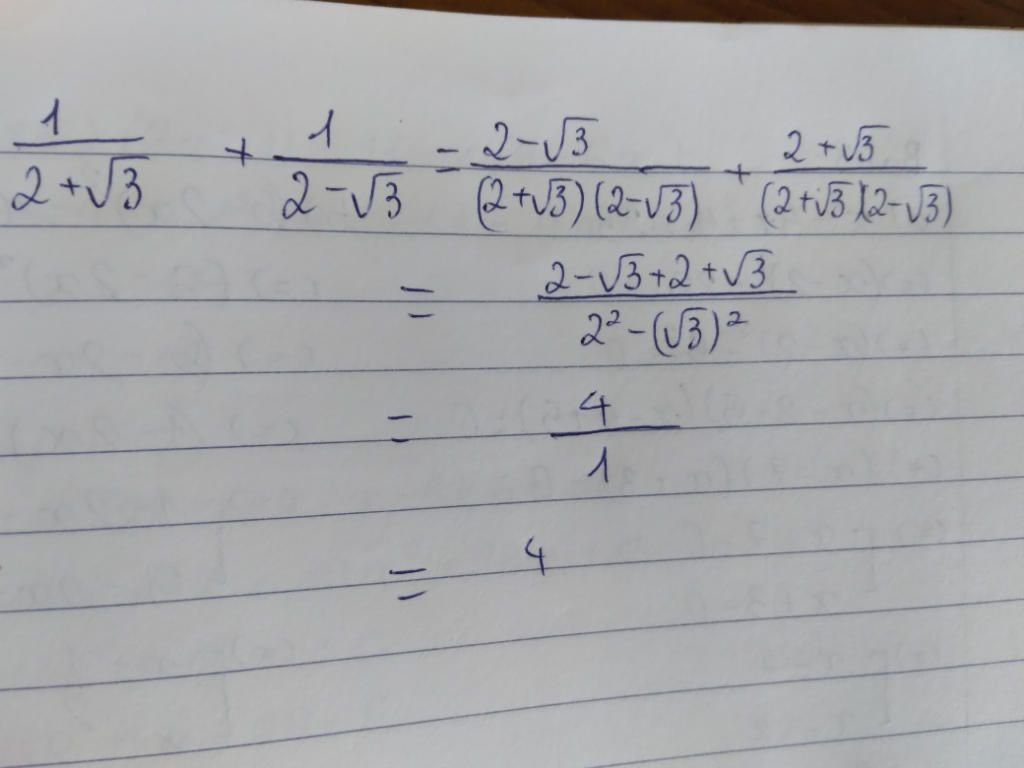 1/(2+√3) + 1/(2-√3) = (2-√3)/((2+√3)(2-√3)) + (2+√3)/((2+√3)(2-√3))
= (2-√3+2+√3)/(2²-(√3)²)
= 4/1
= 4